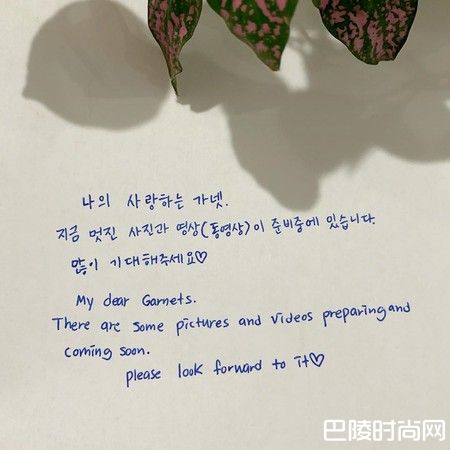 나의 사랑하는 가넷.
지금 멋진 사진과 영상(동영상)이 준비중에 있습니다.
많이 기대해주세요♡
My dear Garnets.
There are some pictures and videos preparing and
coming soon.
please look forward to it♡
巴陵时尚网